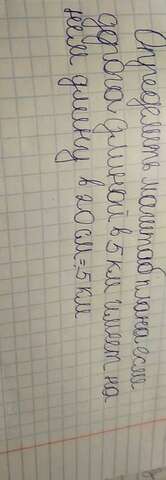 Определить масштаб плана если
дорога длиной в 5 км имеет на
нём длину в 20 см=5 км